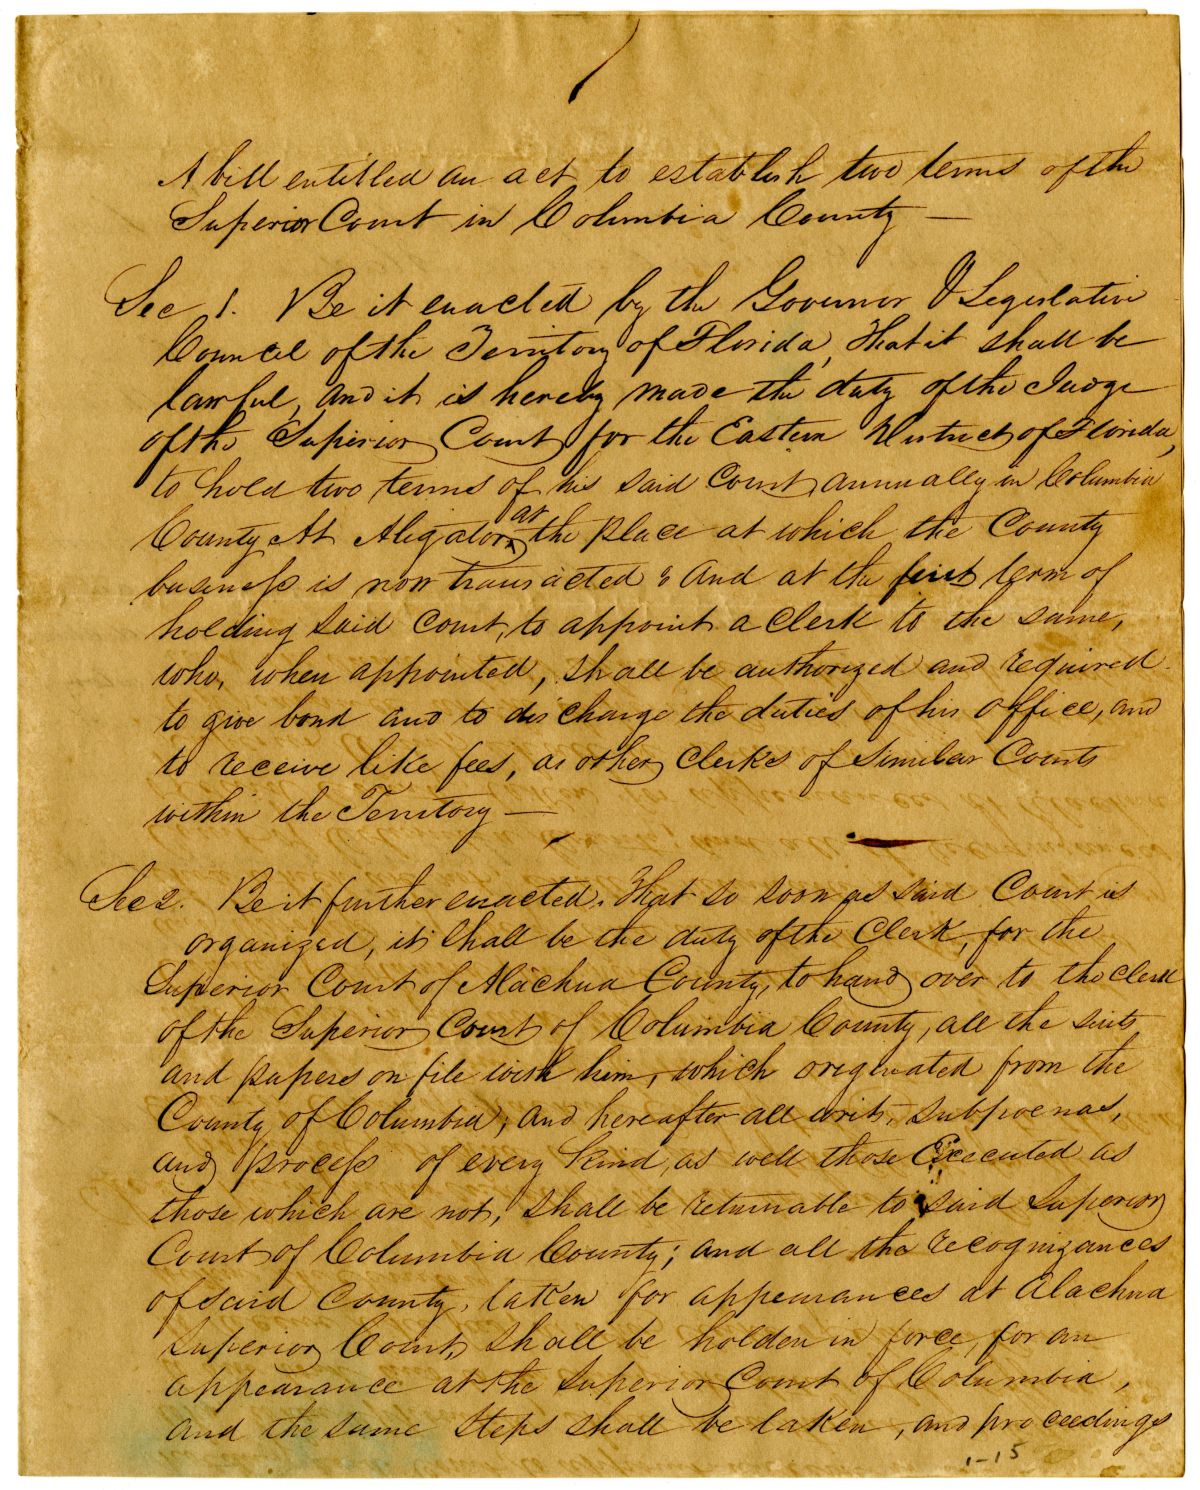 A bill entitled an act to establish two terms of the
Superior Court in Columbia County —
Sec 1. Be it enacted by the Governor & Legislative
Council of the Territory of Florida, That it shall be
lawful, and it is hereby made the duty of the Judge
of the Superior Court for the Eastern District of Florida,
to hold two terms of his said Court annually in Columbia
County At Aligator, at the place at which the County
business is now transacted & And at the first term of
holding said Court, to appoint a Clerk to the same,
who, when appointed, shall be authorized and required
to give bond and to discharge the duties of his office, and
to receive like fees, as other Clerks of Similar Courts
within the Territory —
Sec 2. Be it further enacted. That so soon as said Court is
organized, it shall be the duty of the Clerk, for the
Superior Court of Alachua County, to hand over to the Clerk
of the Superior Court of Columbia County, all the suits
and papers on file with him, which originated from the
County of Columbia, and hereafter all writs, subpoenas,
and process of every kind, as well those Executed as
those which are not, shall be returnable to said Superior
Court of Columbia County; and all the recognizances
of said County, taken for appearances at Alachua
Superior Court, shall be holden in force, for an
appearance at the Superior Court of Columbia,
and the same steps shall be taken, and proceedings
1-15